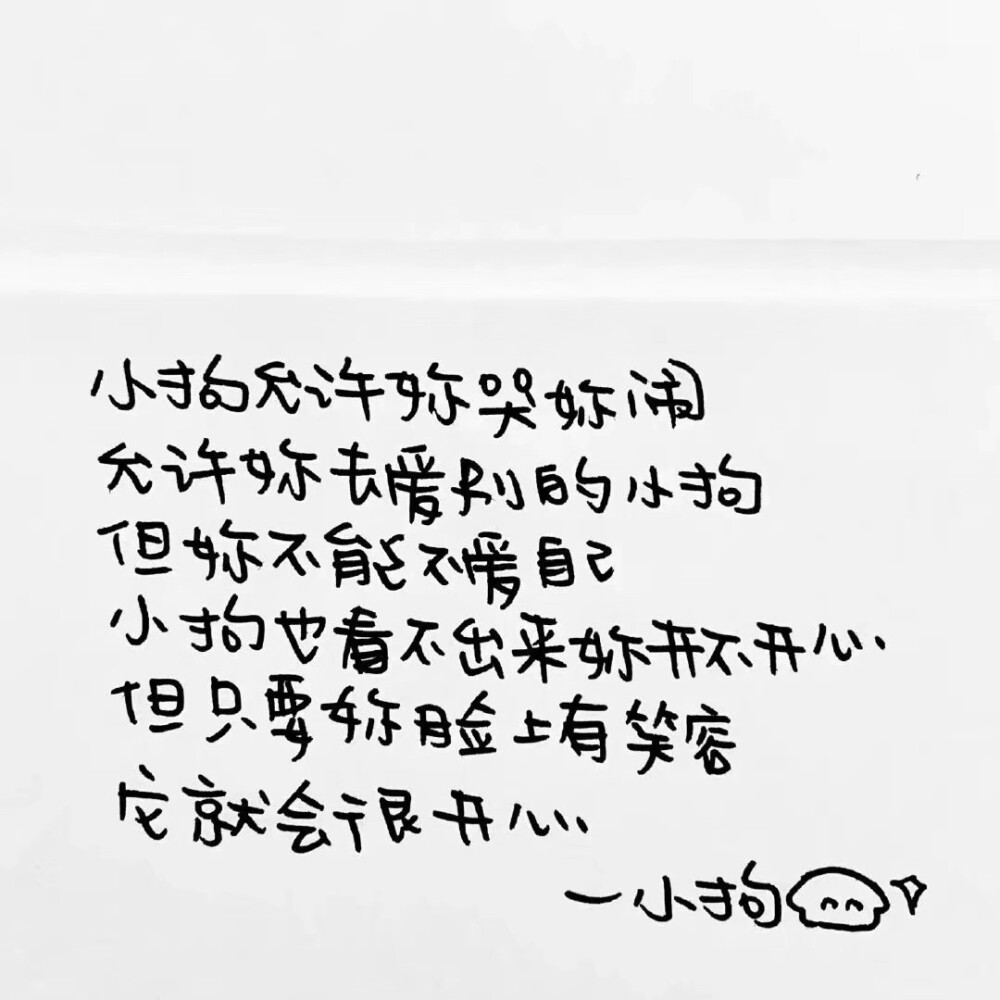 小狗允许妳哭妳闹
允许妳去爱别的小狗
但妳不能不爱自己
小狗也看不出来妳开不开心
但只要妳脸上有笑容
它就会很开心
一小狗